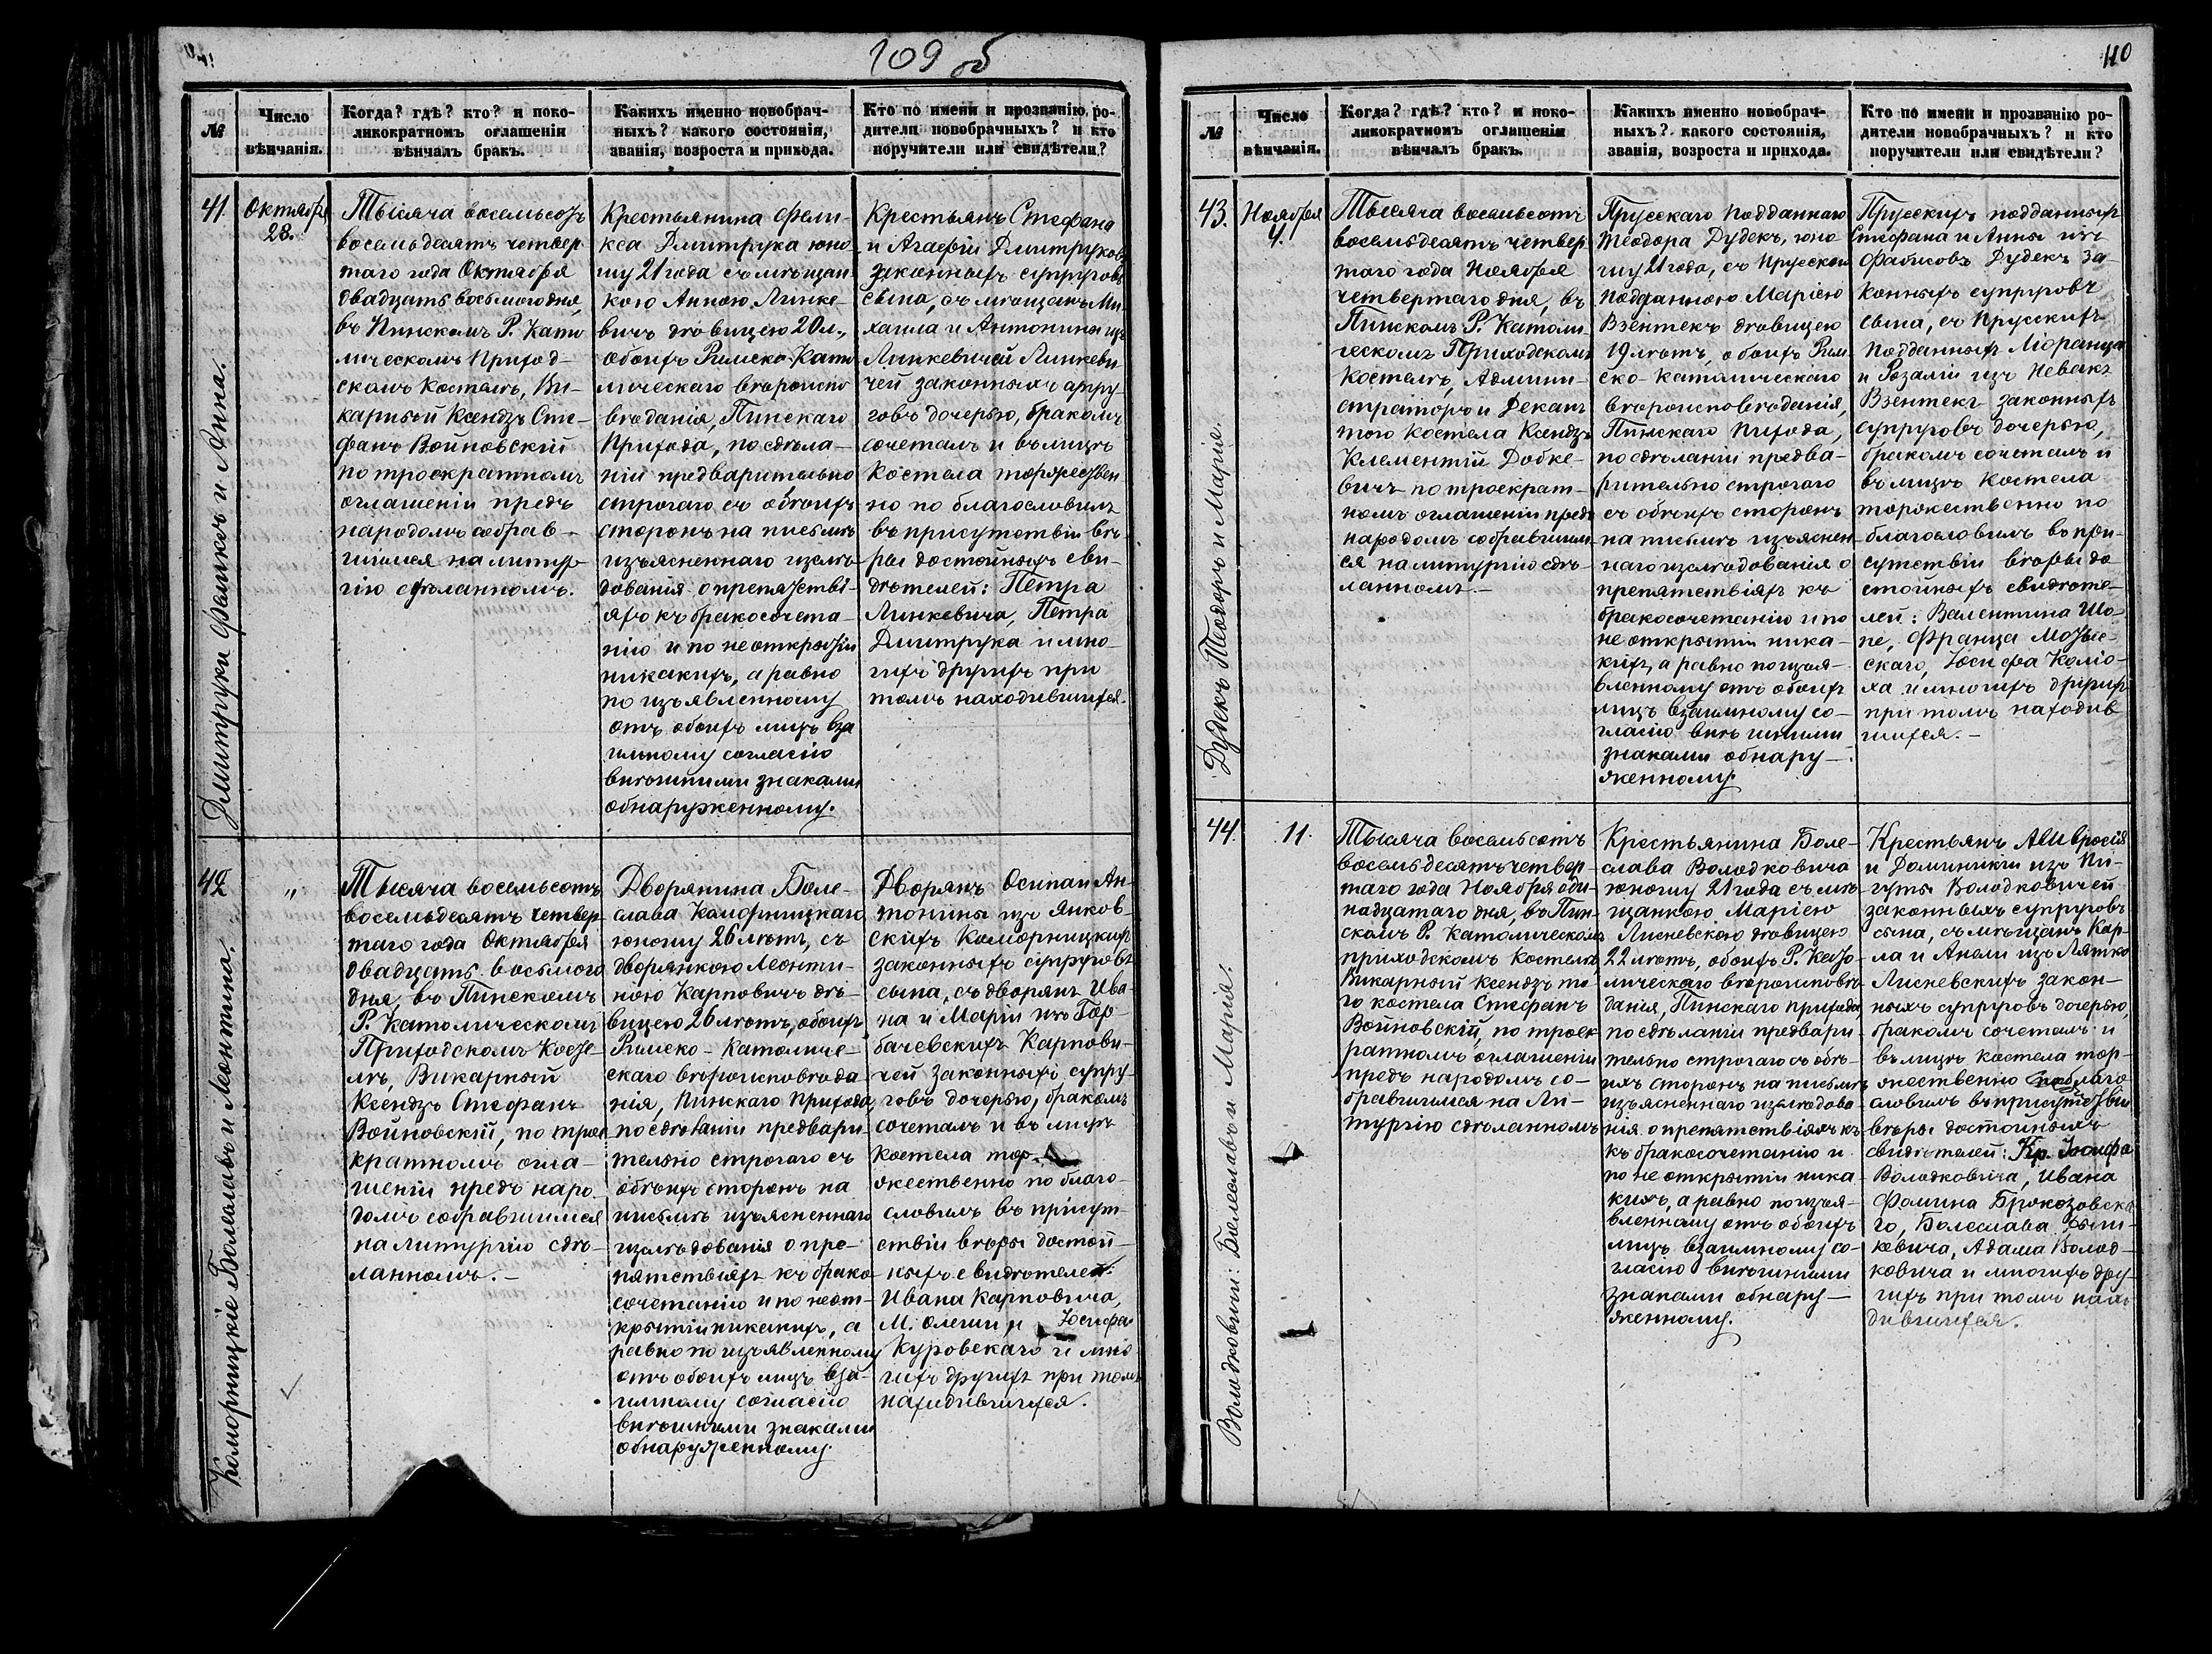 109 об
№
Число
вѣнчанія.
Когда? гдѣ? кто? и поко-
ликократномъ оглашеніи
вѣнчалъ бракъ.
Какихъ именно новобрач-
ныхъ? какого состоянія,
званія, возроста и прихода.
Кто по имени и прозванію ро-
дители новобрачныхъ? и кто
поручители или свидѣтели?
41.
Дмитруки Феликсъ и Анна.
Октября
28.
Тысяча восемьсотъ
восемьдесятъ четвер
таго года Октября
двадцать восьмого дня,
въ Пинскомъ Р. Като
лическомъ Приход-
скомъ Костелѣ, Ви-
карный Ксендзъ Сте-
фанъ Войновскій
по троекратномъ
оглашеніи предъ
народомъ собрав-
шимся на литур-
гію сдѣланномъ.
Крестьянина Фели-
кса Дмитрука юно
шу 21 года съ мѣщан
кою Анною Линке-
вичъ дѣвицею 20 л.,
обоихъ Римско-Като
лическаго вѣроиспо
вѣданія, Пинскаго
Прихода, по сдѣла-
ніи предварительно
строгаго съ обоихъ
сторонъ на письмѣ
изъясненнаго изслѣ
дованія о препятстві-
яхъ къ бракосочета-
нію и по не открытіи
никакихъ, а равно
по изъявленному
отъ обоихъ лицъ вза
имному согласію
внѣшними знаками
обнаруженному.
Крестьянъ Стефана
и Агафіи Дмитруковъ
законныхъ супруговъ
сына, съ мѣщанъ Ми-
хаила и Антонины изъ
Линкевичей Линкеви-
чей законныхъ супру-
говъ дочерью, бракомъ
сочеталъ и въ лицѣ
Костела торжествен
но по благословилъ
въ присутствіи вѣ-
ры достойныхъ сви-
дѣтелей: Петра
Линкевича, Петра
Дмитрука и мно-
гихъ другихъ при
томъ находившихся.
42
Коморницкіе Болеславъ и Леонтина.
"
Тысяча восемьсотъ
восемьдесятъ четвер
таго года Октября
двадцать восьмого
дня, въ Пинскомъ
Р. Католическомъ
Приходскомъ Косте-
лѣ, Викарный
Ксендзъ Стефанъ
Войновскій, по трое
кратномъ огла-
шеніи предъ наро-
домъ собравшимся
на литургію сдѣ-
ланномъ.-
Дворянина Боле-
слава Коморницкаго
юношу 26 лѣтъ, съ
дворянкою Леонти-
ною Карповичъ дѣ-
вицею 26 лѣтъ, обоихъ
Римско-Католиче-
скаго вѣроисповѣда
нія, Пинскаго Прихода,
по сдѣланіи предвари
тельно строгаго съ
обѣихъ сторонъ на
письмѣ изъясненнаго
изслѣдованія о пре-
пятствіяхъ къ брако
сочетанію и по неот-
крытіи никакихъ, а
равно по изъявленному
отъ обоихъ лицъ вза-
имному согласію
внѣшними знаками
обнаруженному.
Дворянъ Осипа и Ан-
тонины изъ Янков-
скихъ Коморницкихъ
законныхъ супруговъ
сына, съ дворянъ Ива-
на и Маріи изъ Гор-
бачевскихъ Карпови-
чей законныхъ супру-
говъ дочерью, бракомъ
сочеталъ и въ лицѣ
Костела тор-
жественно по благо-
словилъ въ присут-
ствіи вѣры достой-
ныхъ свидѣтелей:
Ивана Карповича,
М. и Іосифа
Куровскаго и мно
гихъ другихъ при томъ
находившихся.
110
№
Число
вѣнчанія.
Когда? гдѣ? кто? и поко-
ликократномъ оглашеніи
вѣнчалъ бракъ.
Какихъ именно новобрач-
ныхъ? какого состоянія,
званія, возроста и прихода.
Кто по имени и прозванію ро-
дители новобрачныхъ? и кто
поручители или свидѣтели?
43.
Дудекъ Теодоръ и Марія.
Ноября
4.
Тысяча восемьсотъ
восемьдесятъ четвер
таго года Ноября
четвертаго дня, въ
Пинскомъ Р. Католи
ческомъ Приходскомъ
Костелѣ, Админи-
страторъ и Деканъ
того Костела Ксендзъ
Клементій Добке-
вичъ по троекрат-
номъ оглашеніи предъ
народомъ собравшим-
ся на литургію сдѣ-
ланномъ.-
Прусскаго подданнаго
Теодора Дудекъ, юно
шу 21 года, съ Прусскою
подданною Маріею
Взентекъ дѣвицею
19 лѣтъ, обоихъ Рим
ско-католическаго
вѣроисповѣданія,
Пинскаго Прихода,
по сдѣланіи предва-
рительно строгаго
съ обѣихъ сторонъ
на письмѣ изъяснен
наго изслѣдованія о
препятствіяхъ къ
бракосочетанію и по
не открытіи ника-
кихъ, а равно по изъя-
вленному отъ обоихъ
лицъ взаимному со-
гласію внѣшними
знаками обнару-
женному.
Прусскихъ подданныхъ
Стефана и Анны изъ
Фабисовъ Дудекъ за-
конныхъ супруговъ
сына, съ Прусскихъ
подданныхъ
и Розаліи изъ Невакъ
Взентекъ законныхъ
супруговъ дочерью,
бракомъ сочеталъ и
въ лицѣ Костела
торжественно по
благословилъ въ при-
сутствіи вѣры до
стойныхъ свидѣте-
лей: Валентина Шо-
пе, Франца
скаго, Іосифа Коліо-
ха и многихъ другихъ
при томъ находив
шихся.-
44.
Володковичи: Болеславъ и Марія.
11.
Тысяча восемьсотъ
восемьдесятъ четвер
таго года Ноября оди-
надцатаго дня, въ Пин-
скомъ Р. Католическомъ
приходскомъ Костелѣ,
Викарный Ксендзъ то-
го костела Стефанъ
Войновскій, по троек
ратномъ оглашеніи
предъ народомъ со-
бравшимся на Ли-
тургію сдѣланномъ
Крестьянина Боле-
слава Володковича
юношу 21 года съ мѣ-
щанкою Маріею
Лисневскою дѣвицею
22 лѣтъ, обоихъ Р. Като
лическаго вѣроисповѣ-
данія, Пинскаго прихода,
по сдѣланіи предвари
тельно строгаго съ обѣ-
ихъ сторонъ на письмѣ
изъясненнаго изслѣдова-
нія о препятствіяхъ къ
къ бракосочетанію и
по не открытіи ника
кихъ, а равно по изъя-
вленному отъ обоихъ
лицъ взаимному со-
гласію внѣшними
знаками обнару-
женному.
Крестьянъ Амвросія
и Доминики изъ Пи-
гуты Володковичей
законныхъ супруговъ
сына, съ мѣщанъ Кар-
ла и Анели изъ Лятко
Лисневскихъ закон-
ныхъ супруговъ дочерью,
бракомъ сочеталъ и
въ лицѣ Костела тор-
жественно по благо
словилъ въ присутствіи
вѣры достойныхъ
свидѣтелей: Кр. Іосифа
Володковича, Ивана
Фомина
го, Болеслава
ковича, Адама Волод-
ковича и многихъ дру-
гихъ при томъ нахо
дившихся.